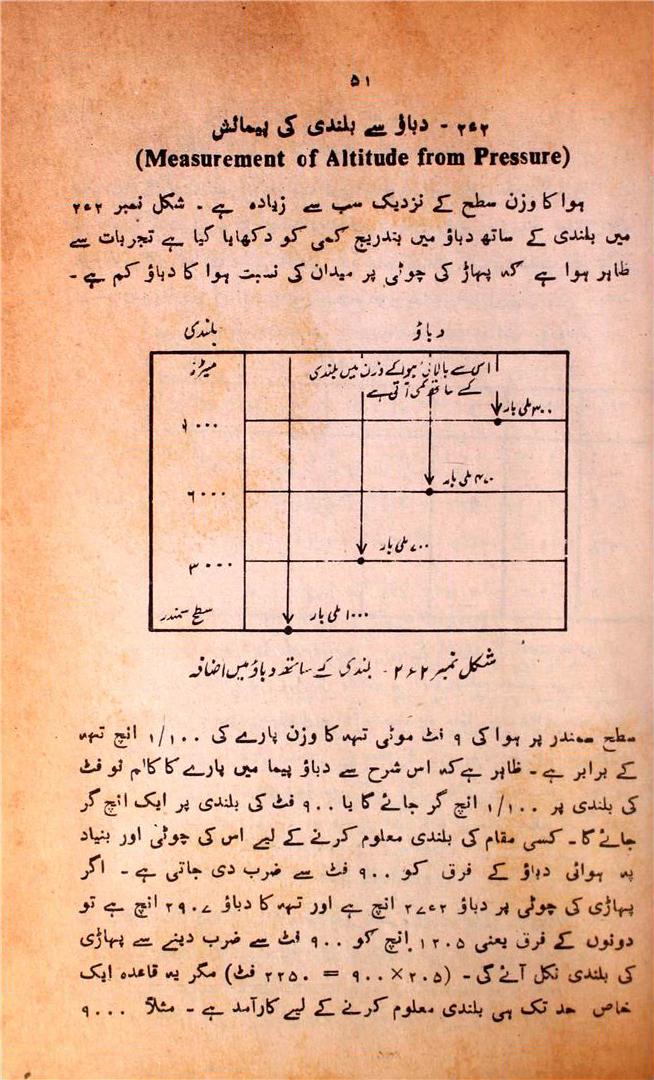 ۵۱
۲ء۲ - دباؤ سے بلندی کی پیمائش
(Measurement of Altitude from Pressure)
ہوا کا وزن سطح کے نزدیک سب سے زیادہ ہے ۔ شکل نمبر ۲ء۲
میں بلندی کے ساتھ دباؤ میں بتدریج کمی کو دکھایا گیا ہے تجربات سے
ظاہر ہوا ہے کہ پہاڑ کی چوٹی پر میدان کی نسبت ہوا کا دباؤ کم ہے ۔
بلندی دباؤ
میٹرز اسی سے بالائی ہوا کے وزن میں بلندی
کے ساتھ کمی آتی ہے
۳۰۰ ملی بار
۹۰۰۰
۴۷۰ ملی بار
۶۰۰۰
۷۰۰ ملی بار
۳۰۰۰
سطح سمندر ۱۰۰۰ ملی بار
شکل نمبر ۲ء۲ - بلندی کے ساتھ دباؤ میں اضافہ
سطح سمندر پر ہوا کی ۹ فٹ موٹی تہہ کا وزن پارے کی ۱/۱۰۰ انچ تہہ
کے برابر ہے ۔ ظاہر ہے کہ اس شرح سے دباؤ پیما میں پارے کا کالم نو فٹ
کی بلندی پر ۱/۱۰۰ انچ گر جائے گا یا ۹۰۰ فٹ کی بلندی پر ایک انچ گر
جائے گا ۔ کسی مقام کی بلندی معلوم کرنے کے لیے اس کی چوٹی اور بنیاد
پہ ہوائی دباؤ کے فرق کو ۹۰۰ فٹ سے ضرب دی جاتی ہے ۔ اگر
پہاڑی کی چوٹی پر دباؤ ۲۷ء۲ انچ ہے اور تہہ کا دباؤ ۲۹۰۷ انچ ہے تو
دونوں کے فرق یعنی ۱۲۰۵ انچ کو ۹۰۰ فٹ سے ضرب دینے سے پہاڑی
کی بلندی نکل آئے گی ۔ (۲۰۵×۹۰۰ = ۲۲۵۰ فٹ) مگر یہ قاعدہ ایک
خاص حد تک ہی بلندی معلوم کرنے کے لیے کارآمد ہے ۔ مثلاً ۹۰۰۰